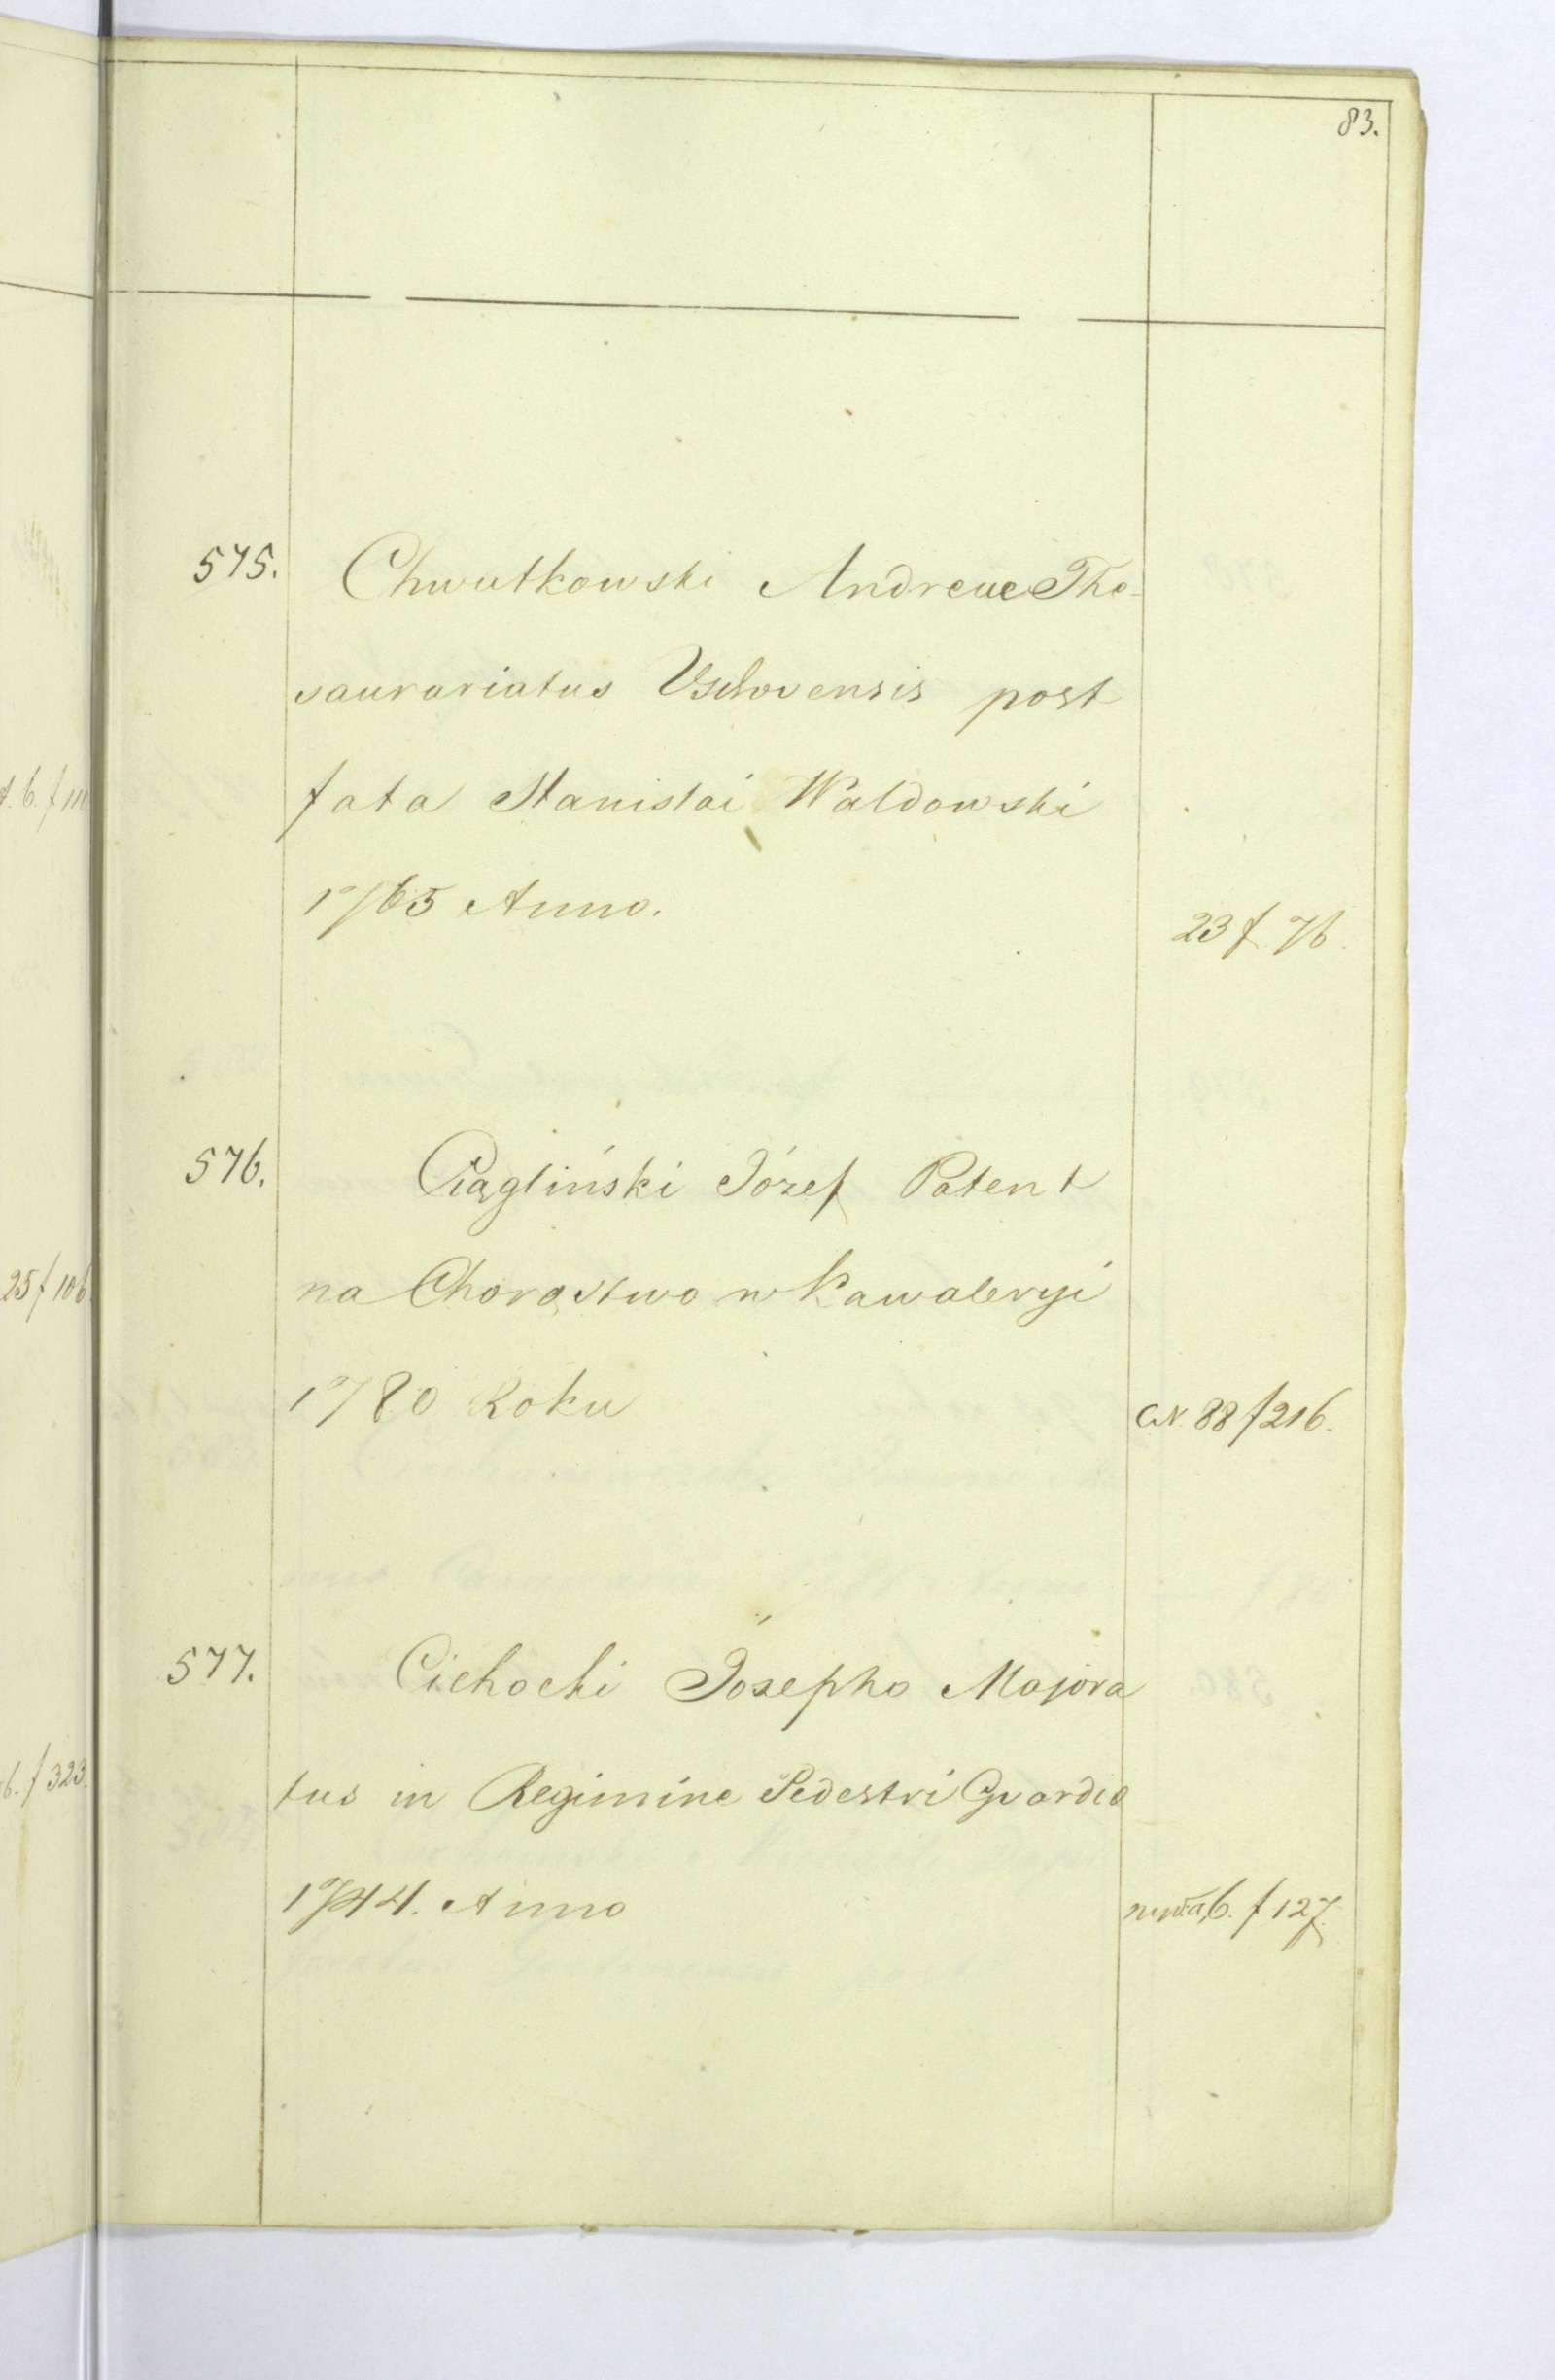 83.
575. Chwałkowski Andreae The-
saurariatus Vschovensis post
fata Stanislai Waldowski
1765 Anno.
23 f 76.
576. Ciągliński Józef Patent
na Chorąstwo w Kawaleryi
1780 Roku
88 f 216.
577. Cichocki Josepho Majora
tus in Regimine Pedestri Gvardia
1744. Anno
6. f 127.
25 f 106
f 323.